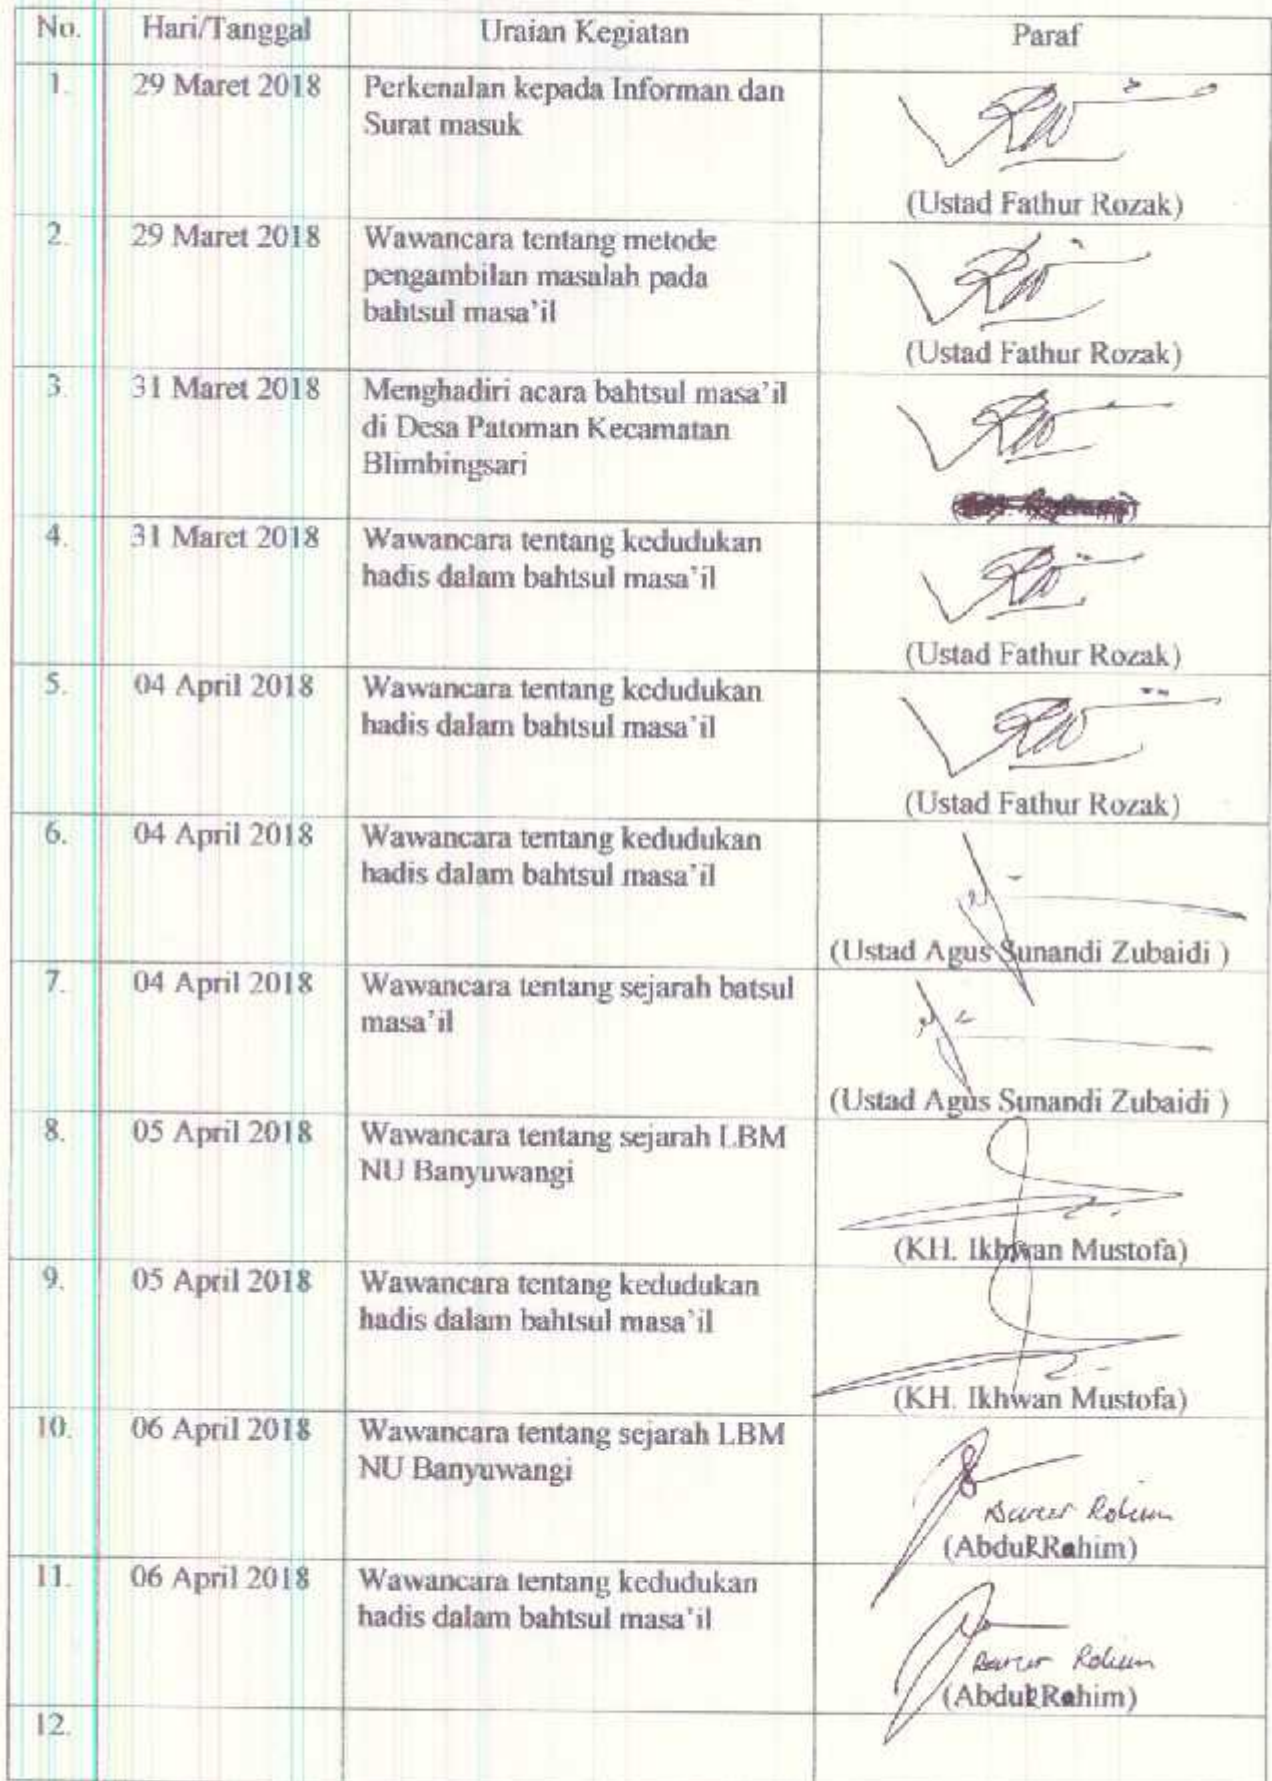 No. Hari/Tanggal Uraian Kegiatan Paraf
1. 29 Maret 2018 Perkenalan kepada Informan dan
Surat masuk
(Ustad Fathur Rozak)
2. 29 Maret 2018 Wawancara tentang metode
pengambilan masalah pada
bahtsul masa'il
(Ustad Fathur Rozak)
3. 31 Maret 2018 Menghadiri acara bahtsul masa'il
di Desa Patoman Kecamatan
Blimbingsari
4. 31 Maret 2018 Wawancara tentang kedudukan
hadis dalam bahtsul masa'il
(Ustad Fathur Rozak)
5. 04 April 2018 Wawancara tentang kedudukan
hadis dalam bahtsul masa'il
(Ustad Fathur Rozak)
6. 04 April 2018 Wawancara tentang kedudukan
hadis dalam bahtsul masa'il
(Ustad Agus Sunandi Zubaidi )
7. 04 April 2018 Wawancara tentang sejarah batsul
masa'il
(Ustad Agus Sunandi Zubaidi )
8. 05 April 2018 Wawancara tentang sejarah LBM
NU Banyuwangi
(KH. Ikhwan Mustofa)
9. 05 April 2018 Wawancara tentang kedudukan
hadis dalam bahtsul masa'il
(KH. Ikhwan Mustofa)
10. 06 April 2018 Wawancara tentang sejarah LBM
NU Banyuwangi
(Abdul Rahim)
11. 06 April 2018 Wawancara tentang kedudukan
hadis dalam bahtsul masa'il
(Abdul Rahim)
12.